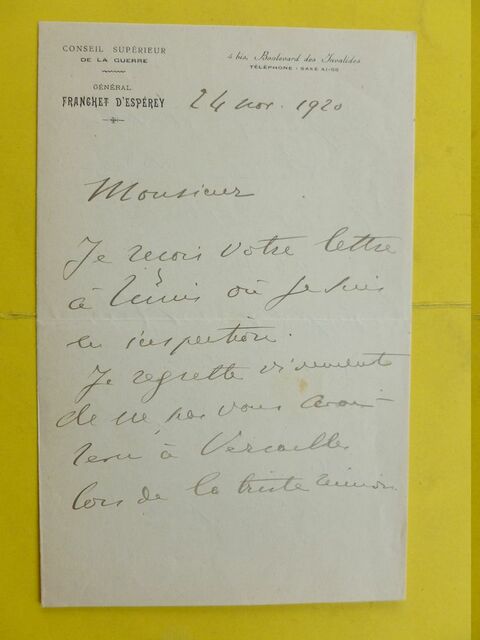 CONSEIL SUPÉRIEUR
DE LA GUERRE
GÉNÉRAL
FRANCHET D'ESPÉREY
4 bis, Boulevard des Invalides
TÉLÉPHONE - SAXE
24 nov. 1920
Monsieur
Je reçois votre lettre
à Tunis où je suis
en inspection.
Je regrette vivement
de ne pas vous avoir
à Versailles
lors de la triste réunion